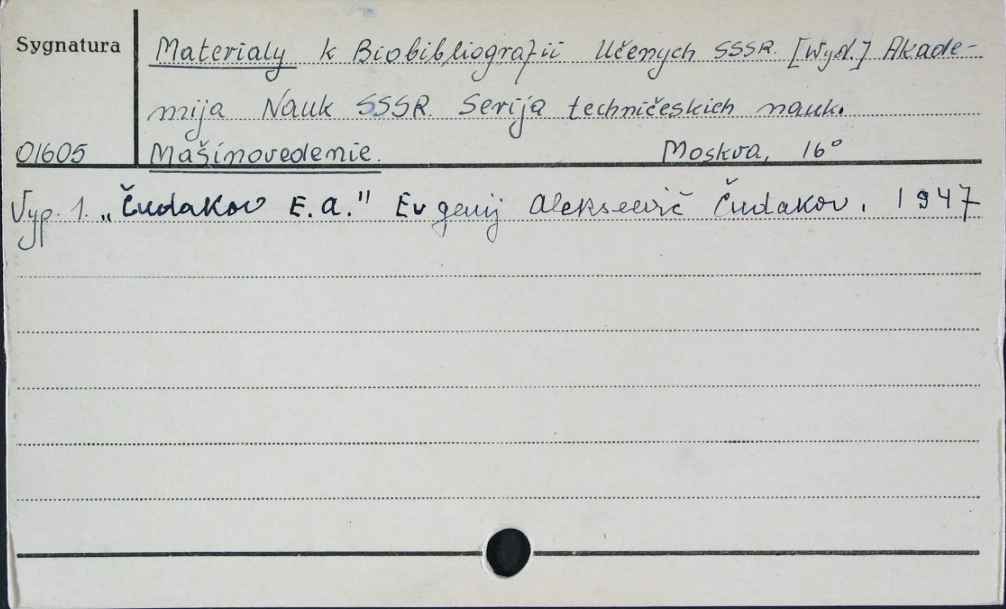 Sygnatura Materialy k Biobibliografii Učenych SSSR. [Wyd.] Akade-
mija Nauk SSSR Serija techničeskich nauk.
01605 Mašinovedenie. Moskva, 16°
Vyp. 1. „Čudakov E.A." Evgenij Aleksievič Čudakov. 1947